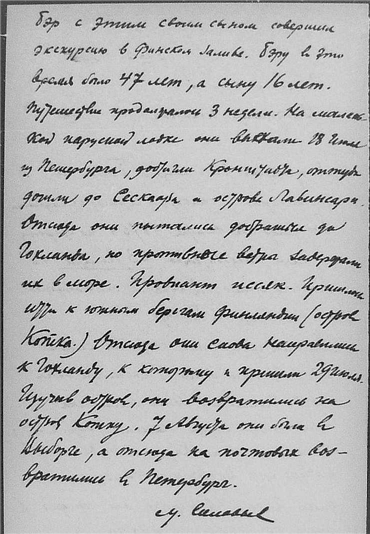 Бэр с этим своим сыном совершил
экскурсию в Финском заливе. Бэру в это
время было 47 лет, а сыну 16 лет.
Путешествие продолжалось 3 недели. На малень-
кой парусной лодке они выехали 18 Июля
из Петербурга, достигли Кронштадта, оттуда
дошли до Сескара и острова Лавенсари.
Отсюда они пытались добраться до
Гохланда, но противные ветры задержали
их в море. Провиант иссяк. Пришлось
идти к южным берегам Финляндии (остров
Котка.) Отсюда они снова направились
к Гохланду, к которому и пришли 29 июля.
Изучив остров, они возвратились на
остров Котку. 7 Августа они были в
Выборге, а отсюда на почтовых воз-
вратились в Петербург.
М. Соловьев